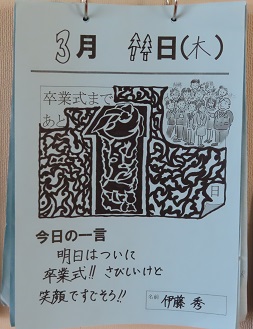 3月 日(木)
卒業式まで
あと
1
日
今日の一言
明日はついに
卒業式!! さびしいけど
笑顔ですごそう!!
名前 伊藤 秀